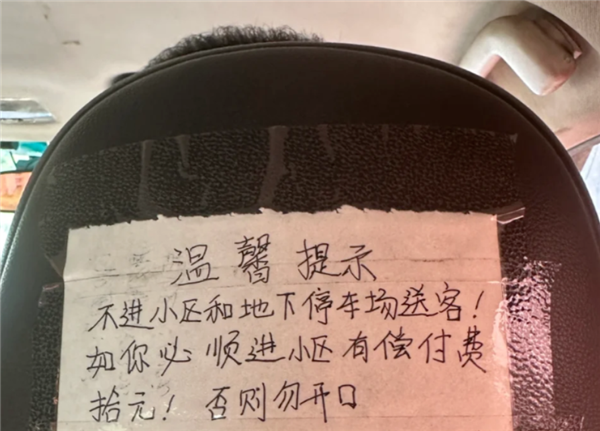 温馨提示
不进小区和地下停车场送客!
如你必顺进小区有偿付费
拾元!否则勿开口